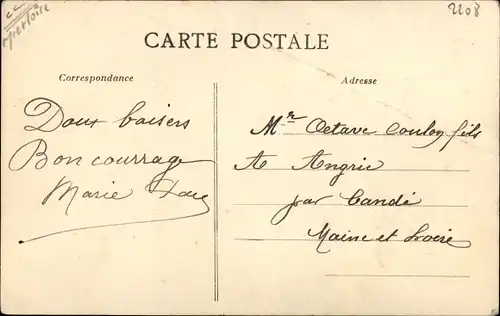 2208
CARTE POSTALE
Correspondance
Adresse
Doux baisers
Bon courrage
Marie
Mr Octave Coulon fils
A Angrie
par Candé
Maine et Loire